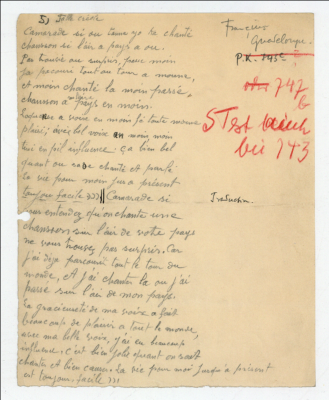 5)
Camarade si ou tann yo ka chanté
chanson si l'air a pays a ou.
Pas trouvé ou surpris, pace moin
ja parcouri tout au tour a moune,
et moins chanté la moin passé,
chanson a pays en moin.
voix en moin fé toute moune
plaisi, avec bel voix an moin, moin
influence. Ça bien bel
quant ou chanté et parlé
la vie pour moin jus a présent
toujour facile))) Camarade si
vous entendez qu'on chante une
chansson sur l'air de votre pays
ne vous trouvez pas surpris. Car
j'ai déja parcouru tout le tour du
monde, et j'ai chanter la ou j'ai
passé sur l'air de mon pays.
La gracieuseté de ma voix a fait
beaucoup de plaisir a tout le monde,
avec ma belle voix, j'ai eu beaucoup
influence. c'est bien jolie quant on sait
chanté et bien causer. La vie pour moi jusqu'à présent
est toujour facile)))
Guadeloupe.
747
b
5 Test
bis 743
Traduction